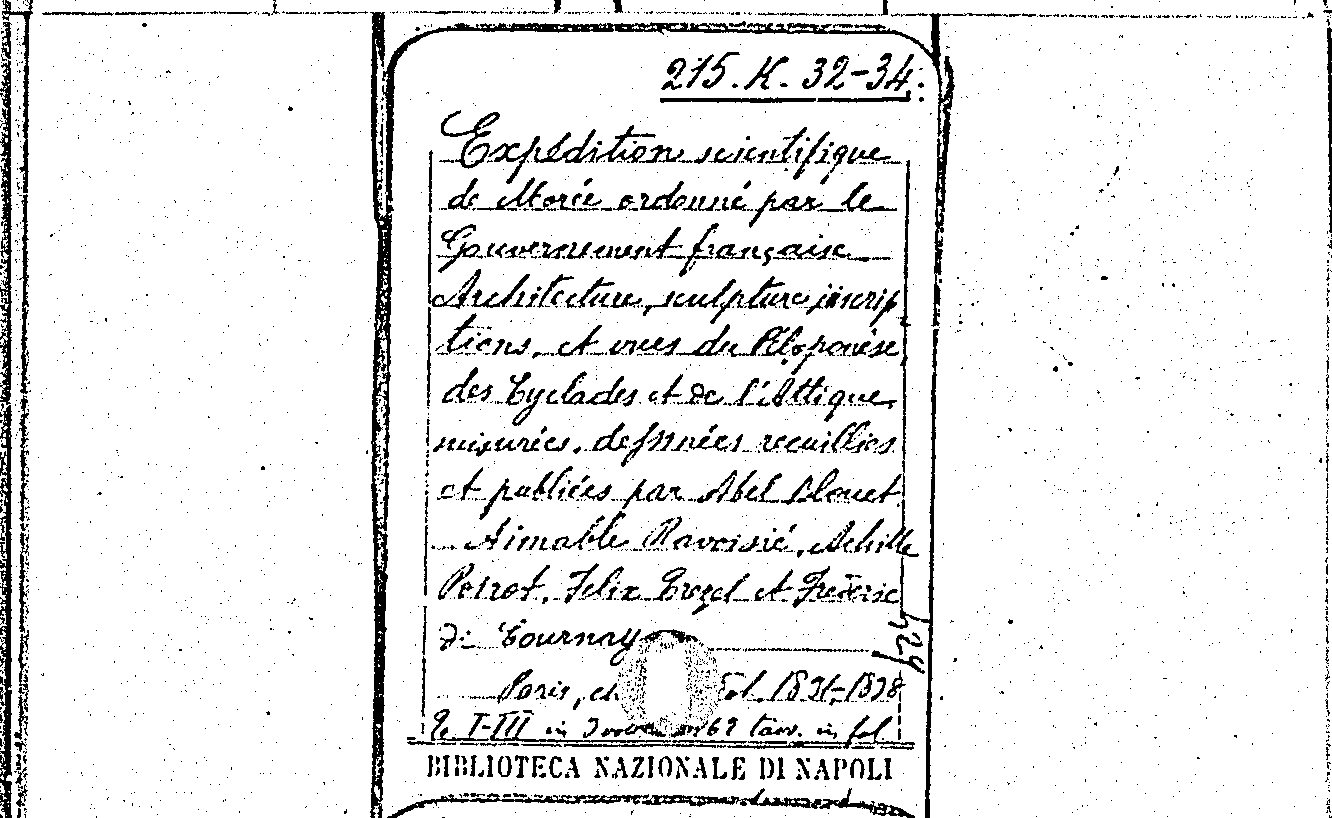 215.K.32-34.
Expédition scientifique
de Morée ordonné par le
Gouvernement française
Architecture, sculpture, inscrip
tions, et vues du Péloponèse
des Cyclades et de l'Attique
misurées, dessinées recuillies
et publiées par Abel Blouet
Aimable Ravoisié, Achille
Poirot, Felix Trezel et Frédéric
De Tournay
Paris, 1831-1838
I-III in 3 62 tav. in fol.
424
BIBLIOTECA NAZIONALE DI NAPOLI